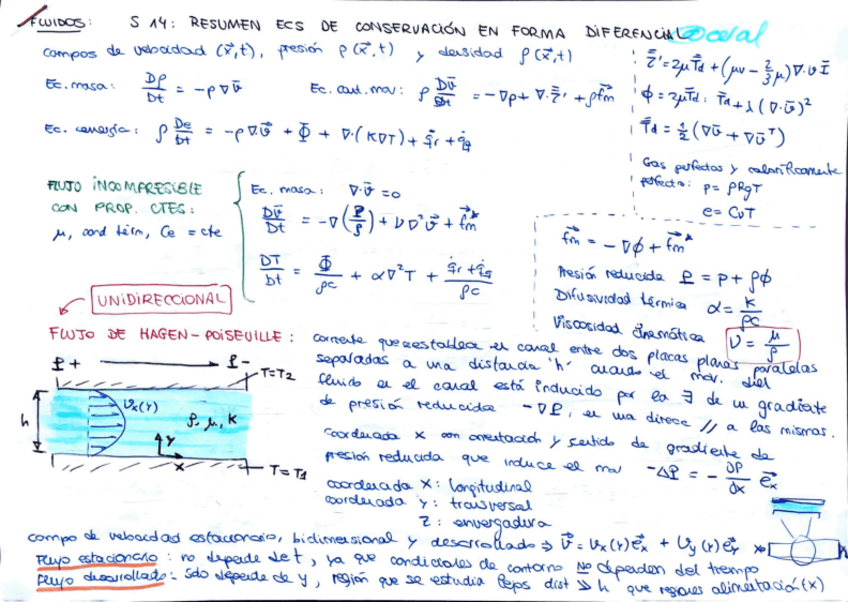 FLUIDOS: S 14: RESUMEN ECS DE CONSERVACIÓN EN FORMA DIFERENCIAL
campos de velocidad (x⃗,t), presión p(x⃗,t) y densidad ρ(x⃗,t)
Ec. masa: Dρ/Dt = -ρ∇v̄
Ec. cant. mov: ρ Dv̄/Dt = -∇p + ∇·τ̄' + ρf⃗m
Ec. energía: ρ De/Dt = -p∇·v̄ + Φ + ∇·(K∇T) + q̇r + q̇q
τ̄' = 2μT̄d + (μv - 2/3 μ)∇·v̄ Ī
ϕ = 2μT̄d : T̄d + λ(∇·v̄)²
T̄d = 1/2 (∇v̄ + ∇v̄ᵀ)
Gas perfectos y caloríficamente
perfecto: p = ρRgT
e = CvT
FLUJO INCOMPRESIBLE
CON PROP. CTES:
μ, cond térm, Ce = cte
Ec. masa: ∇·v̄ = 0
Dv̄/Dt = -∇(P/ρ) + ν∇²v̄ + f⃗m*
DT/Dt = Φ/ρc + α∇²T + (q̇r + q̇q)/ρc
f⃗m = -∇ϕ + f⃗m*
Presión reducida P = p + ρϕ
Difusividad térmica α = K/ρc
Viscosidad cinemática ν = μ/ρ
UNIDIRECCIONAL
FLUJO DE HAGEN-POISEUILLE:
corriente que se establece en canal entre dos placas planas paralelas
separadas a una distancia 'h' cuando el mov. del
fluido en el canal está inducido por la ∃ de un gradiente
de presión reducida -∇P, en una direcc // a las mismas.
coordenada X con orientación y sentido de gradiente de
presión reducida que induce el mov -ΔP = -∂P/∂x e⃗x
coordenada X: longitudinal
coordenada y: trasversal
z: envergadura
P+
P-
T=T2
h
vx(Y)
ρ, μ, K
Y
X
T=T1
campo de velocidad estacionario, bidimensional y desarrollado ⇒ v⃗ = vx(Y)e⃗x + vy(Y)e⃗y
Flujo estacionario: no depende de t, ya que condiciones de contorno NO dependen del tiempo
Flujo desarrollado: Sdo depende de y, región que se estudia lejos dist ≫ h que regiones alimentación (X)